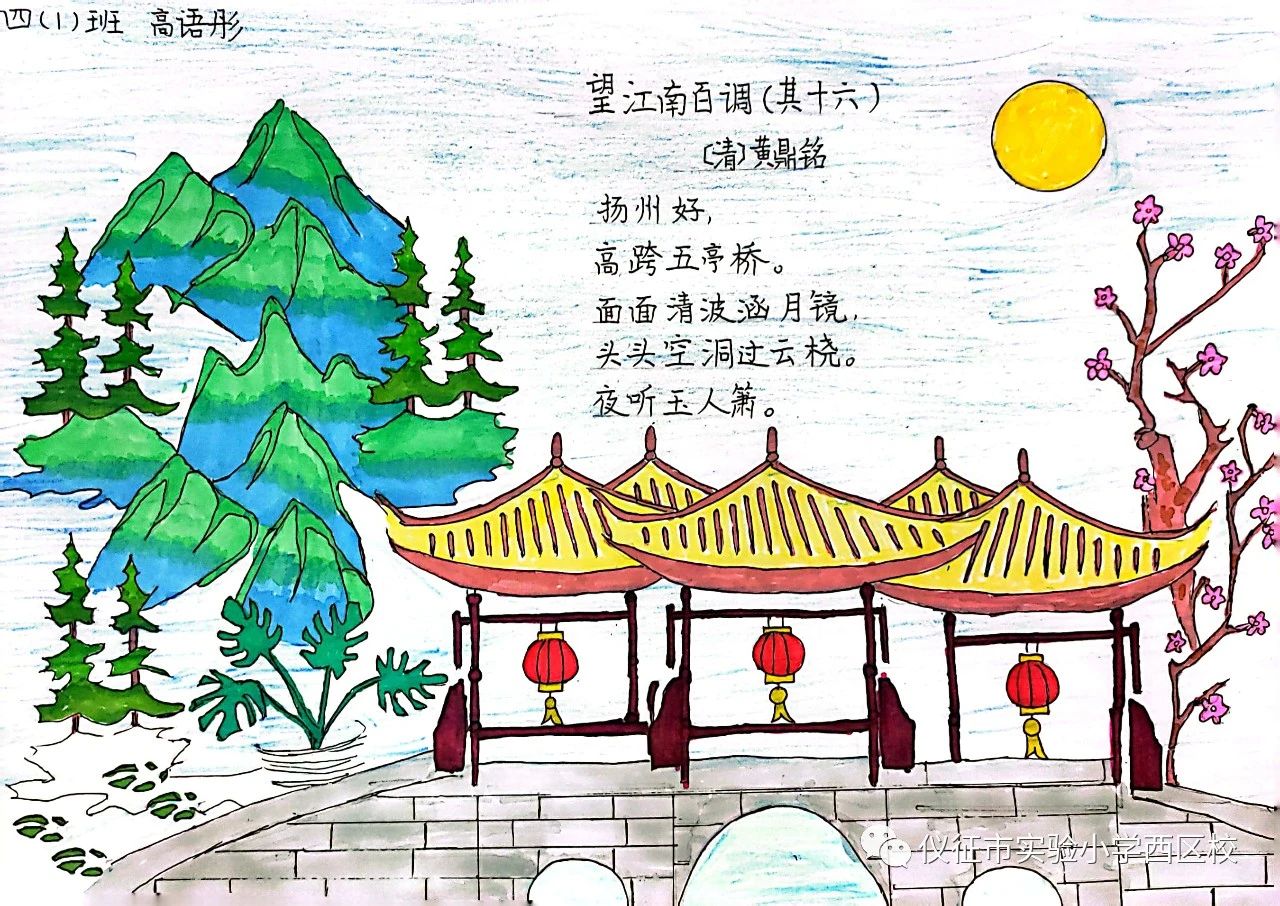 四(1)班 高语彤
望江南百调(其十六)
〔清〕黄鼎铭
扬州好,
高跨五亭桥。
面面清波涵月镜,
头头空洞过云桡。
夜听玉人箫。
仪征市实验小学西区校